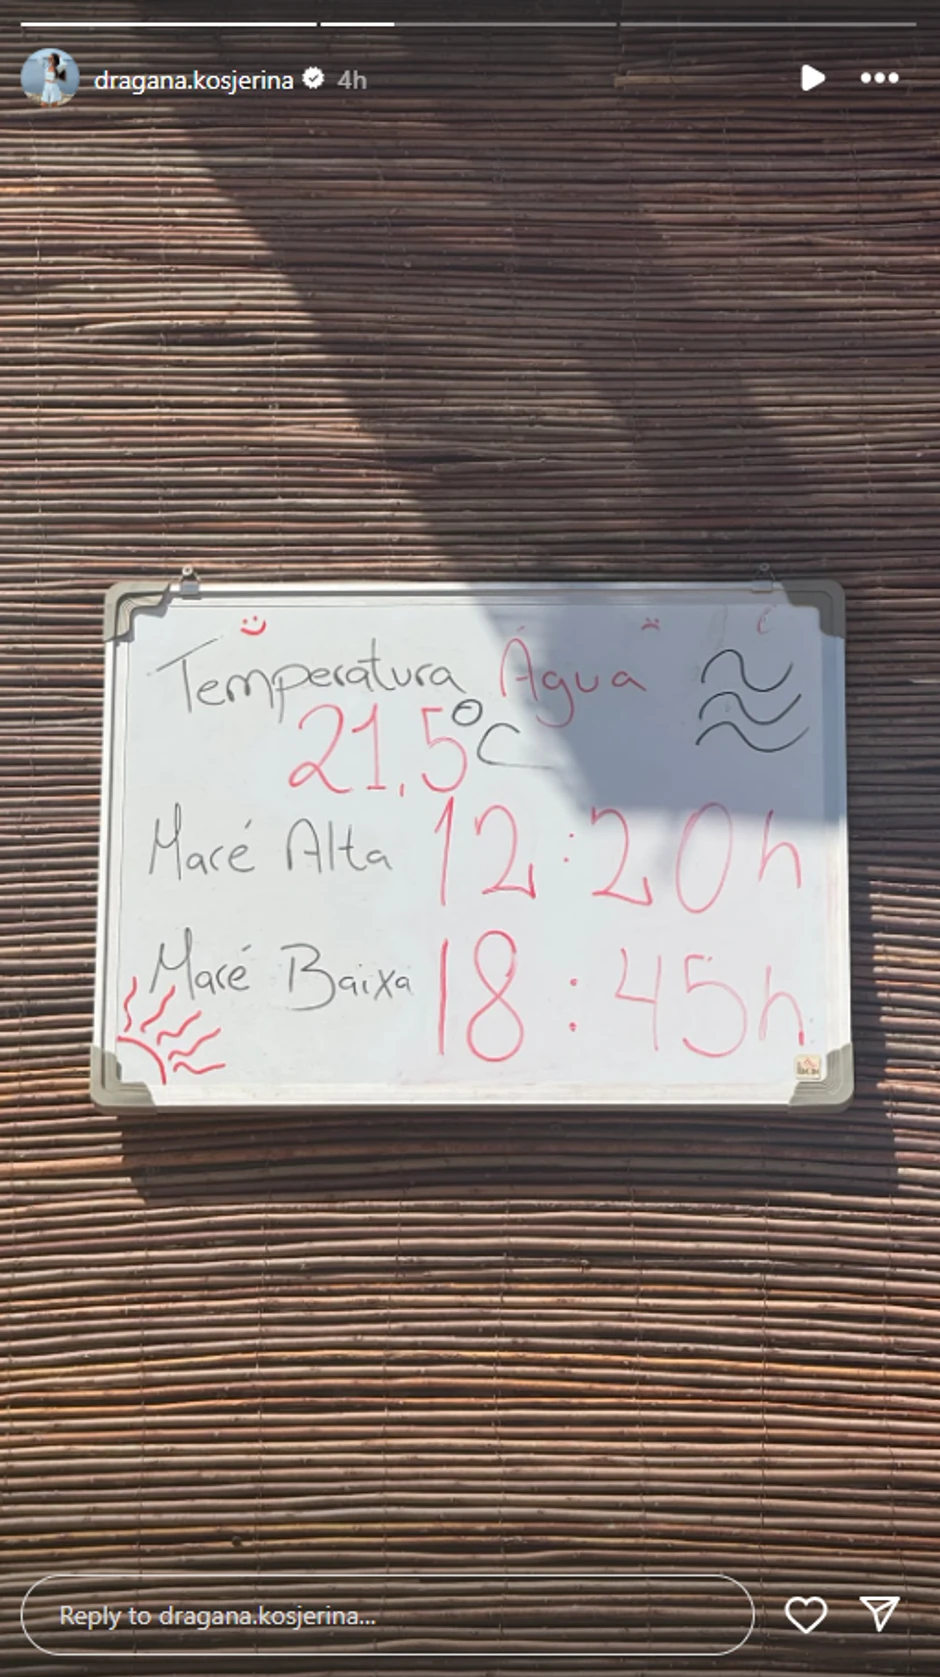 dragana.kosjerina 4h
Temperatura Água
21,5°C
Maré Alta 12:20h
Maré Baixa 18:45h
Reply to dragana.kosjerina...